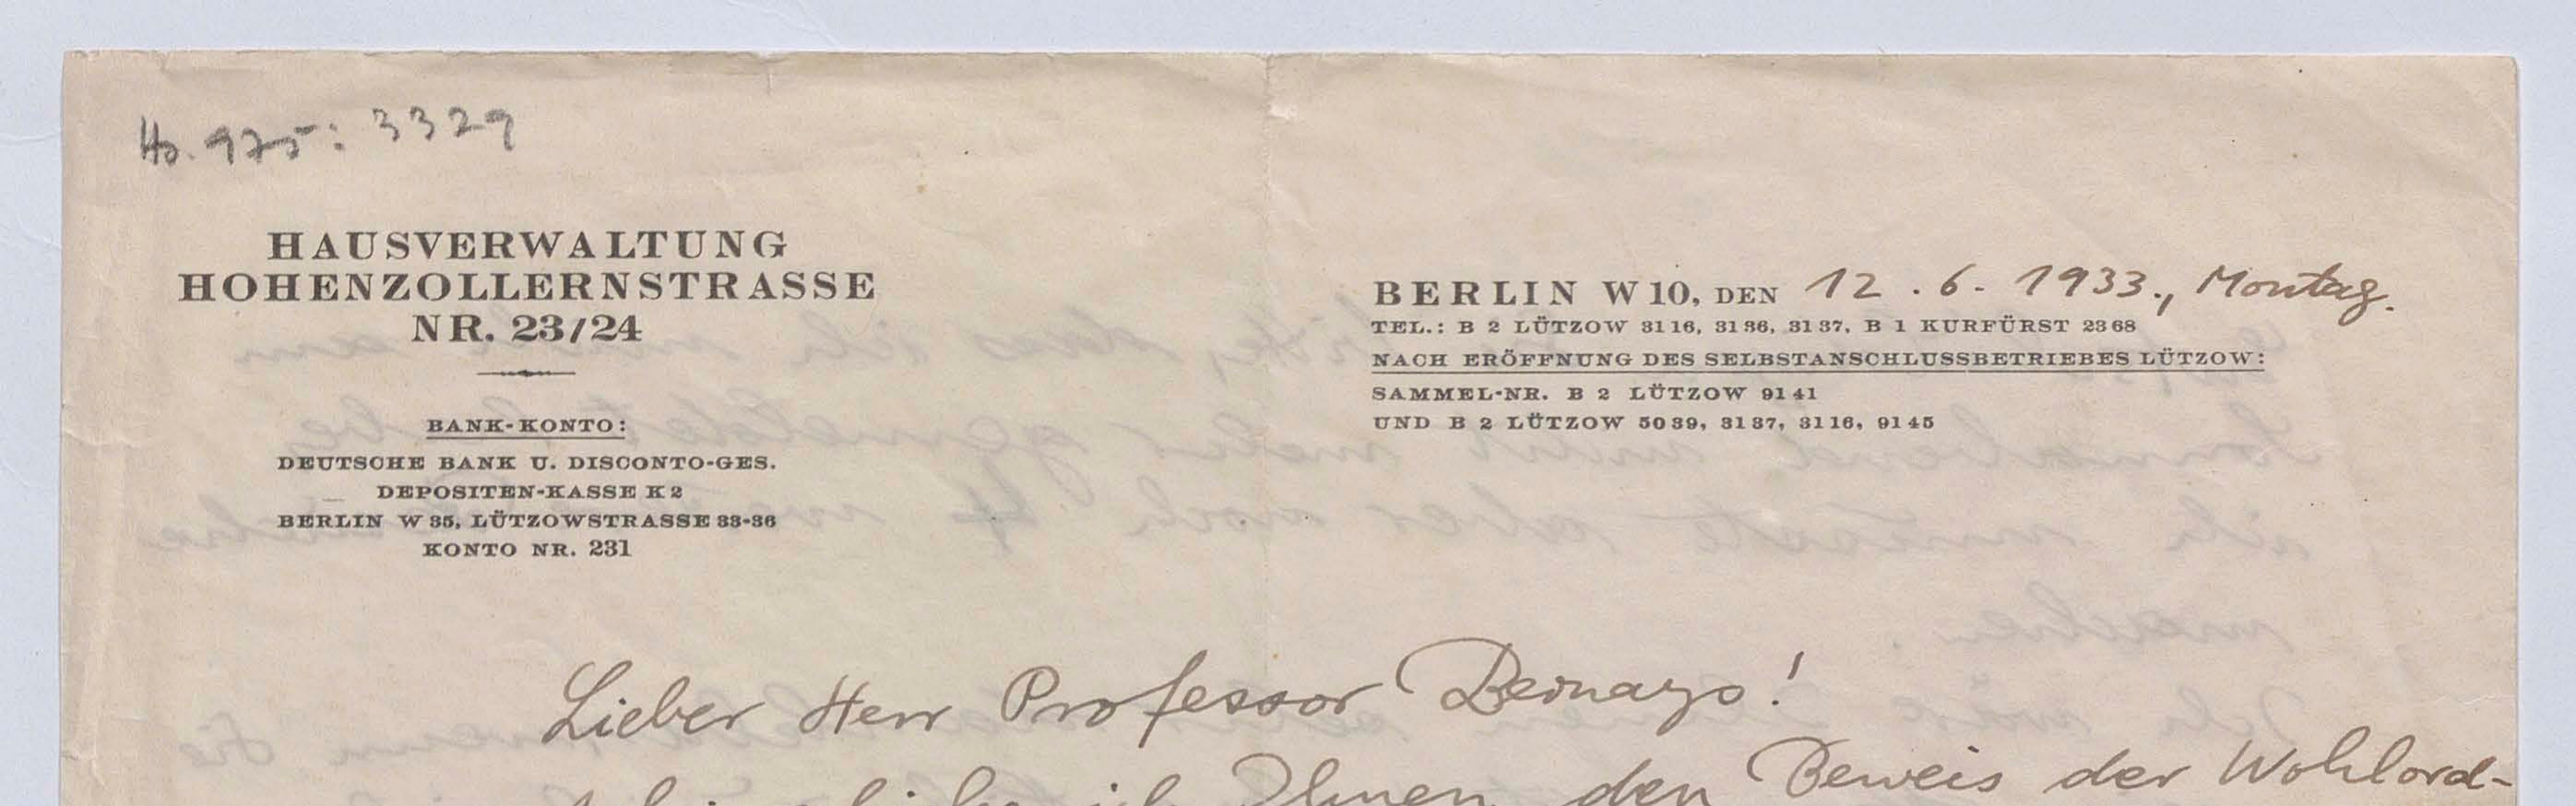 Hs. 975: 3329
HAUSVERWALTUNG
HOHENZOLLERNSTRASSE
NR. 23/24
BANK-KONTO:
DEUTSCHE BANK U. DISCONTO-GES.
DEPOSITEN-KASSE K 2
BERLIN W 35, LÜTZOWSTRASSE 33-36
KONTO NR. 231
BERLIN W 10, DEN 12. 6. 1933., Montag.
TEL.: B 2 LÜTZOW 3116, 3136, 3137, B 1 KURFÜRST 2368
NACH ERÖFFNUNG DES SELBSTANSCHLUSSBETRIEBES LÜTZOW:
SAMMEL-NR. B 2 LÜTZOW 9141
UND B 2 LÜTZOW 5039, 3137, 3116, 9145
Lieber Herr Professor Bernays!
ich Ihnen den Beweis der Wohlord-